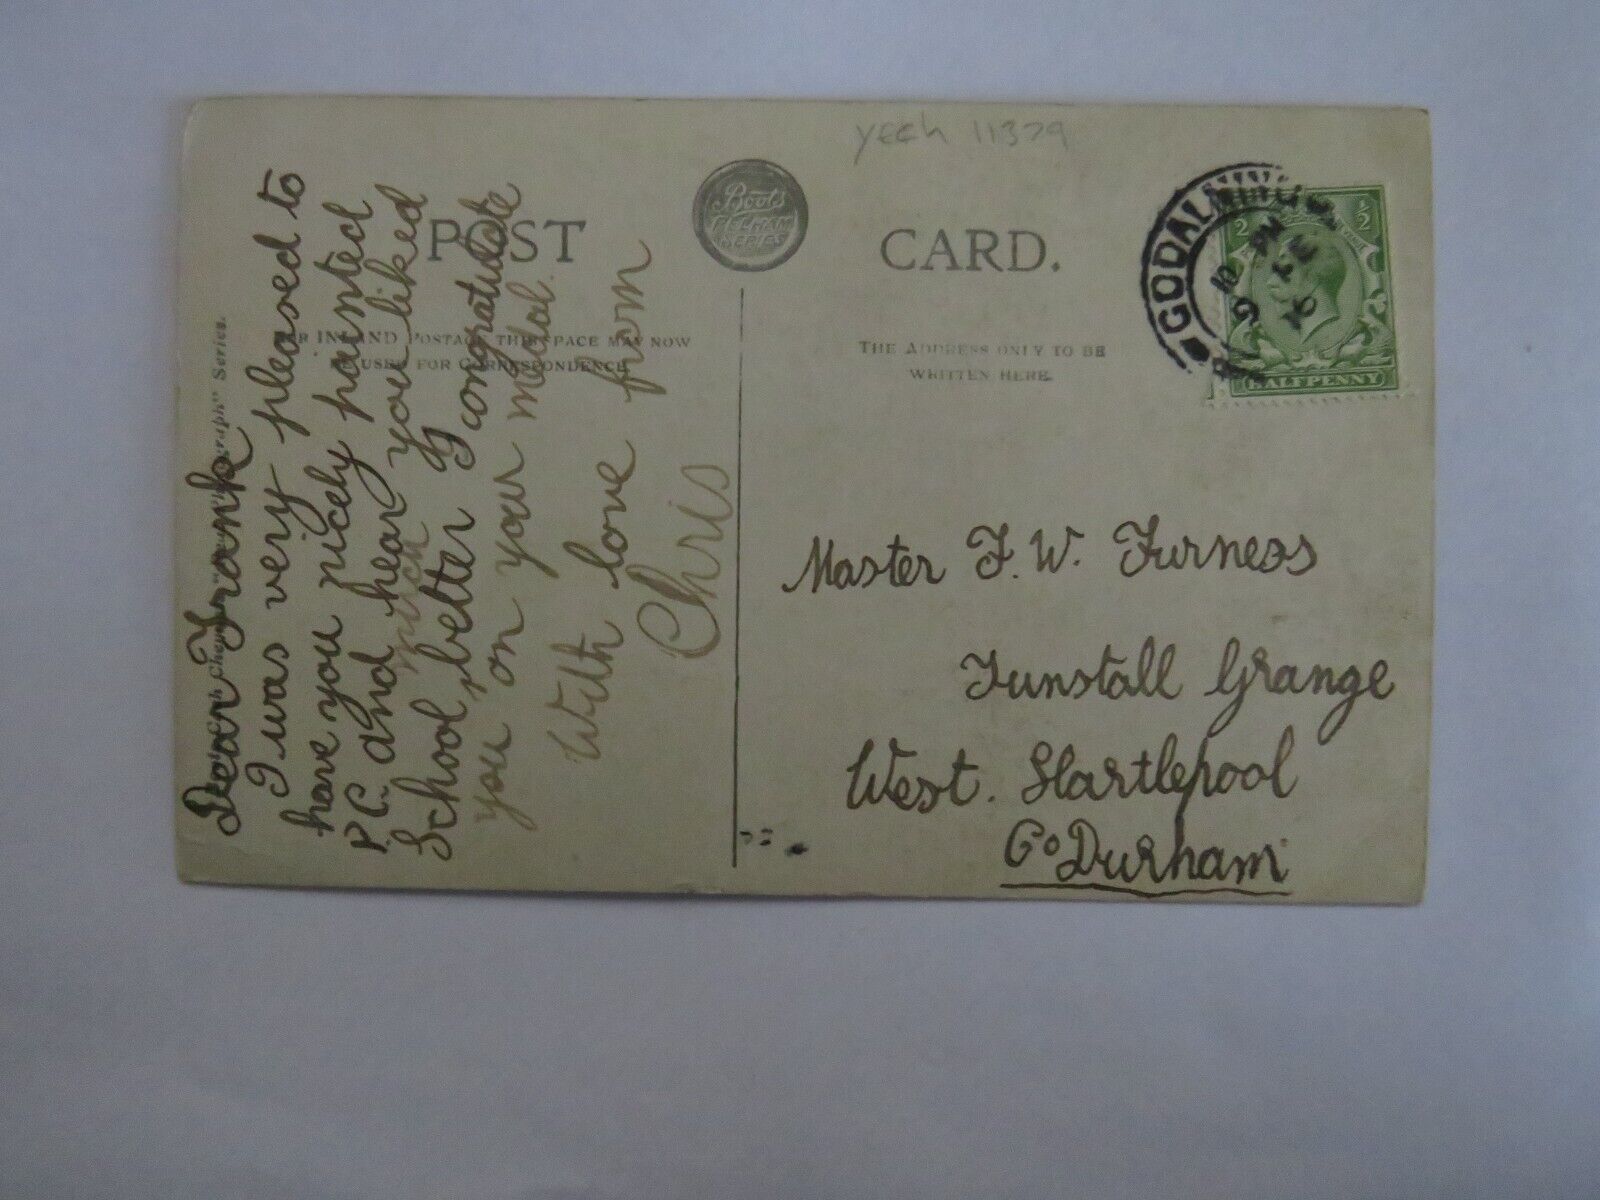 yech 11379
POST CARD.
Boots
PELHAM
SERIES
INLAND POSTAGE THIS SPACE MAY NOW
BE USED FOR CORRESPONDENCE
THE ADDRESS ONLY TO BE
WRITTEN HERE.
GODALMING
HALFPENNY
Series.
Dear Frank
I was very pleased to
have you nicely painted
P.C. and hear you liked
much
School better I congratulate
you on your medal.
With love from
Chris
Master F. W. Furness
Tunstall Grange
West. Hartlepool
Co Durham